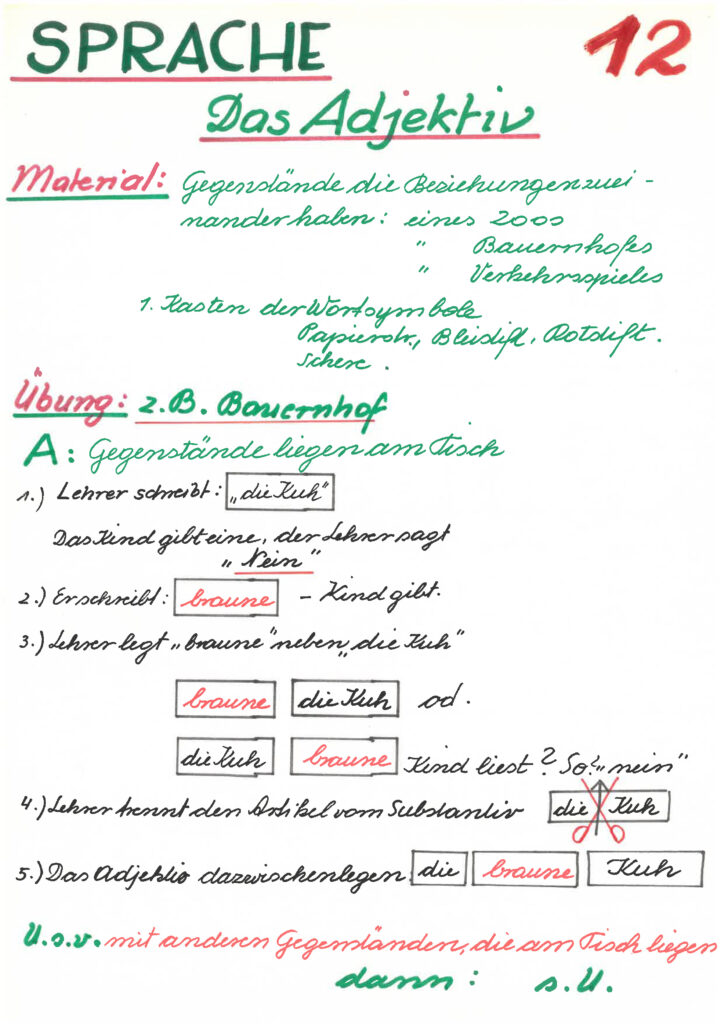 SPRACHE
12
Das Adjektiv
Material: Gegenstände die Beziehungen zuei-
nander haben: eines Zoos
" Bauernhofes
" Verkehrsspieles
1. Kasten der Wortsymbole
Papierstr., Bleistift, Rotstift.
Schere.
Übung: z.B. Bauernhof
A: Gegenstände liegen am Tisch
1.) Lehrer schreibt: „die Kuh"
Das Kind gibt eine, der Lehrer sagt
„Nein"
2.) Er schreibt: braune – Kind gibt.
3.) Lehrer legt „braune" neben „die Kuh"
braune die Kuh od.
die Kuh braune Kind liest? So? „nein"
4.) Lehrer trennt den Artikel vom Substantiv die Kuh
5.) Das Adjektiv dazwischenlegen die braune Kuh
U.s.v. mit anderen Gegenständen, die am Tisch liegen
dann: s.U.